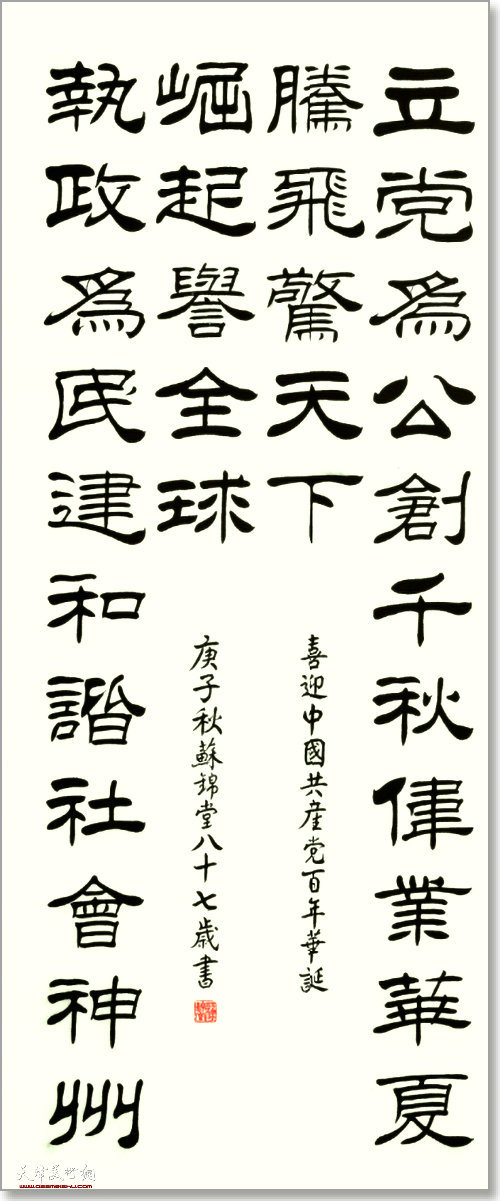 立党為公創千秋偉業華夏
騰飛驚天下
執政為民建和諧社會神州
崛起譽全球
喜迎中國共産党百年華誕
庚子秋蘇錦堂八十七歲書
天津美术网